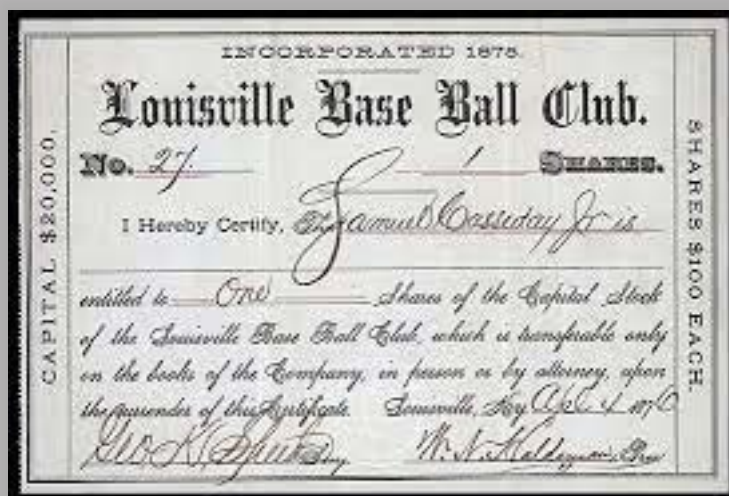 INCORPORATED 1875.
Louisville Base Ball Club.
No. 27. 1 SHARES.
I Hereby Certify, That Samuel Cassiday Jr is
entitled to One Shares of the Capital Stock
of the Louisville Base Ball Club, which is transferable only
on the books of the Company, in person or by attorney, upon
the surrender of this Certificate. Louisville, Ky Apl 4 1876
Geo K
W. N. Haldeman, Pres
CAPITAL $20,000.
SHARES $100 EACH.